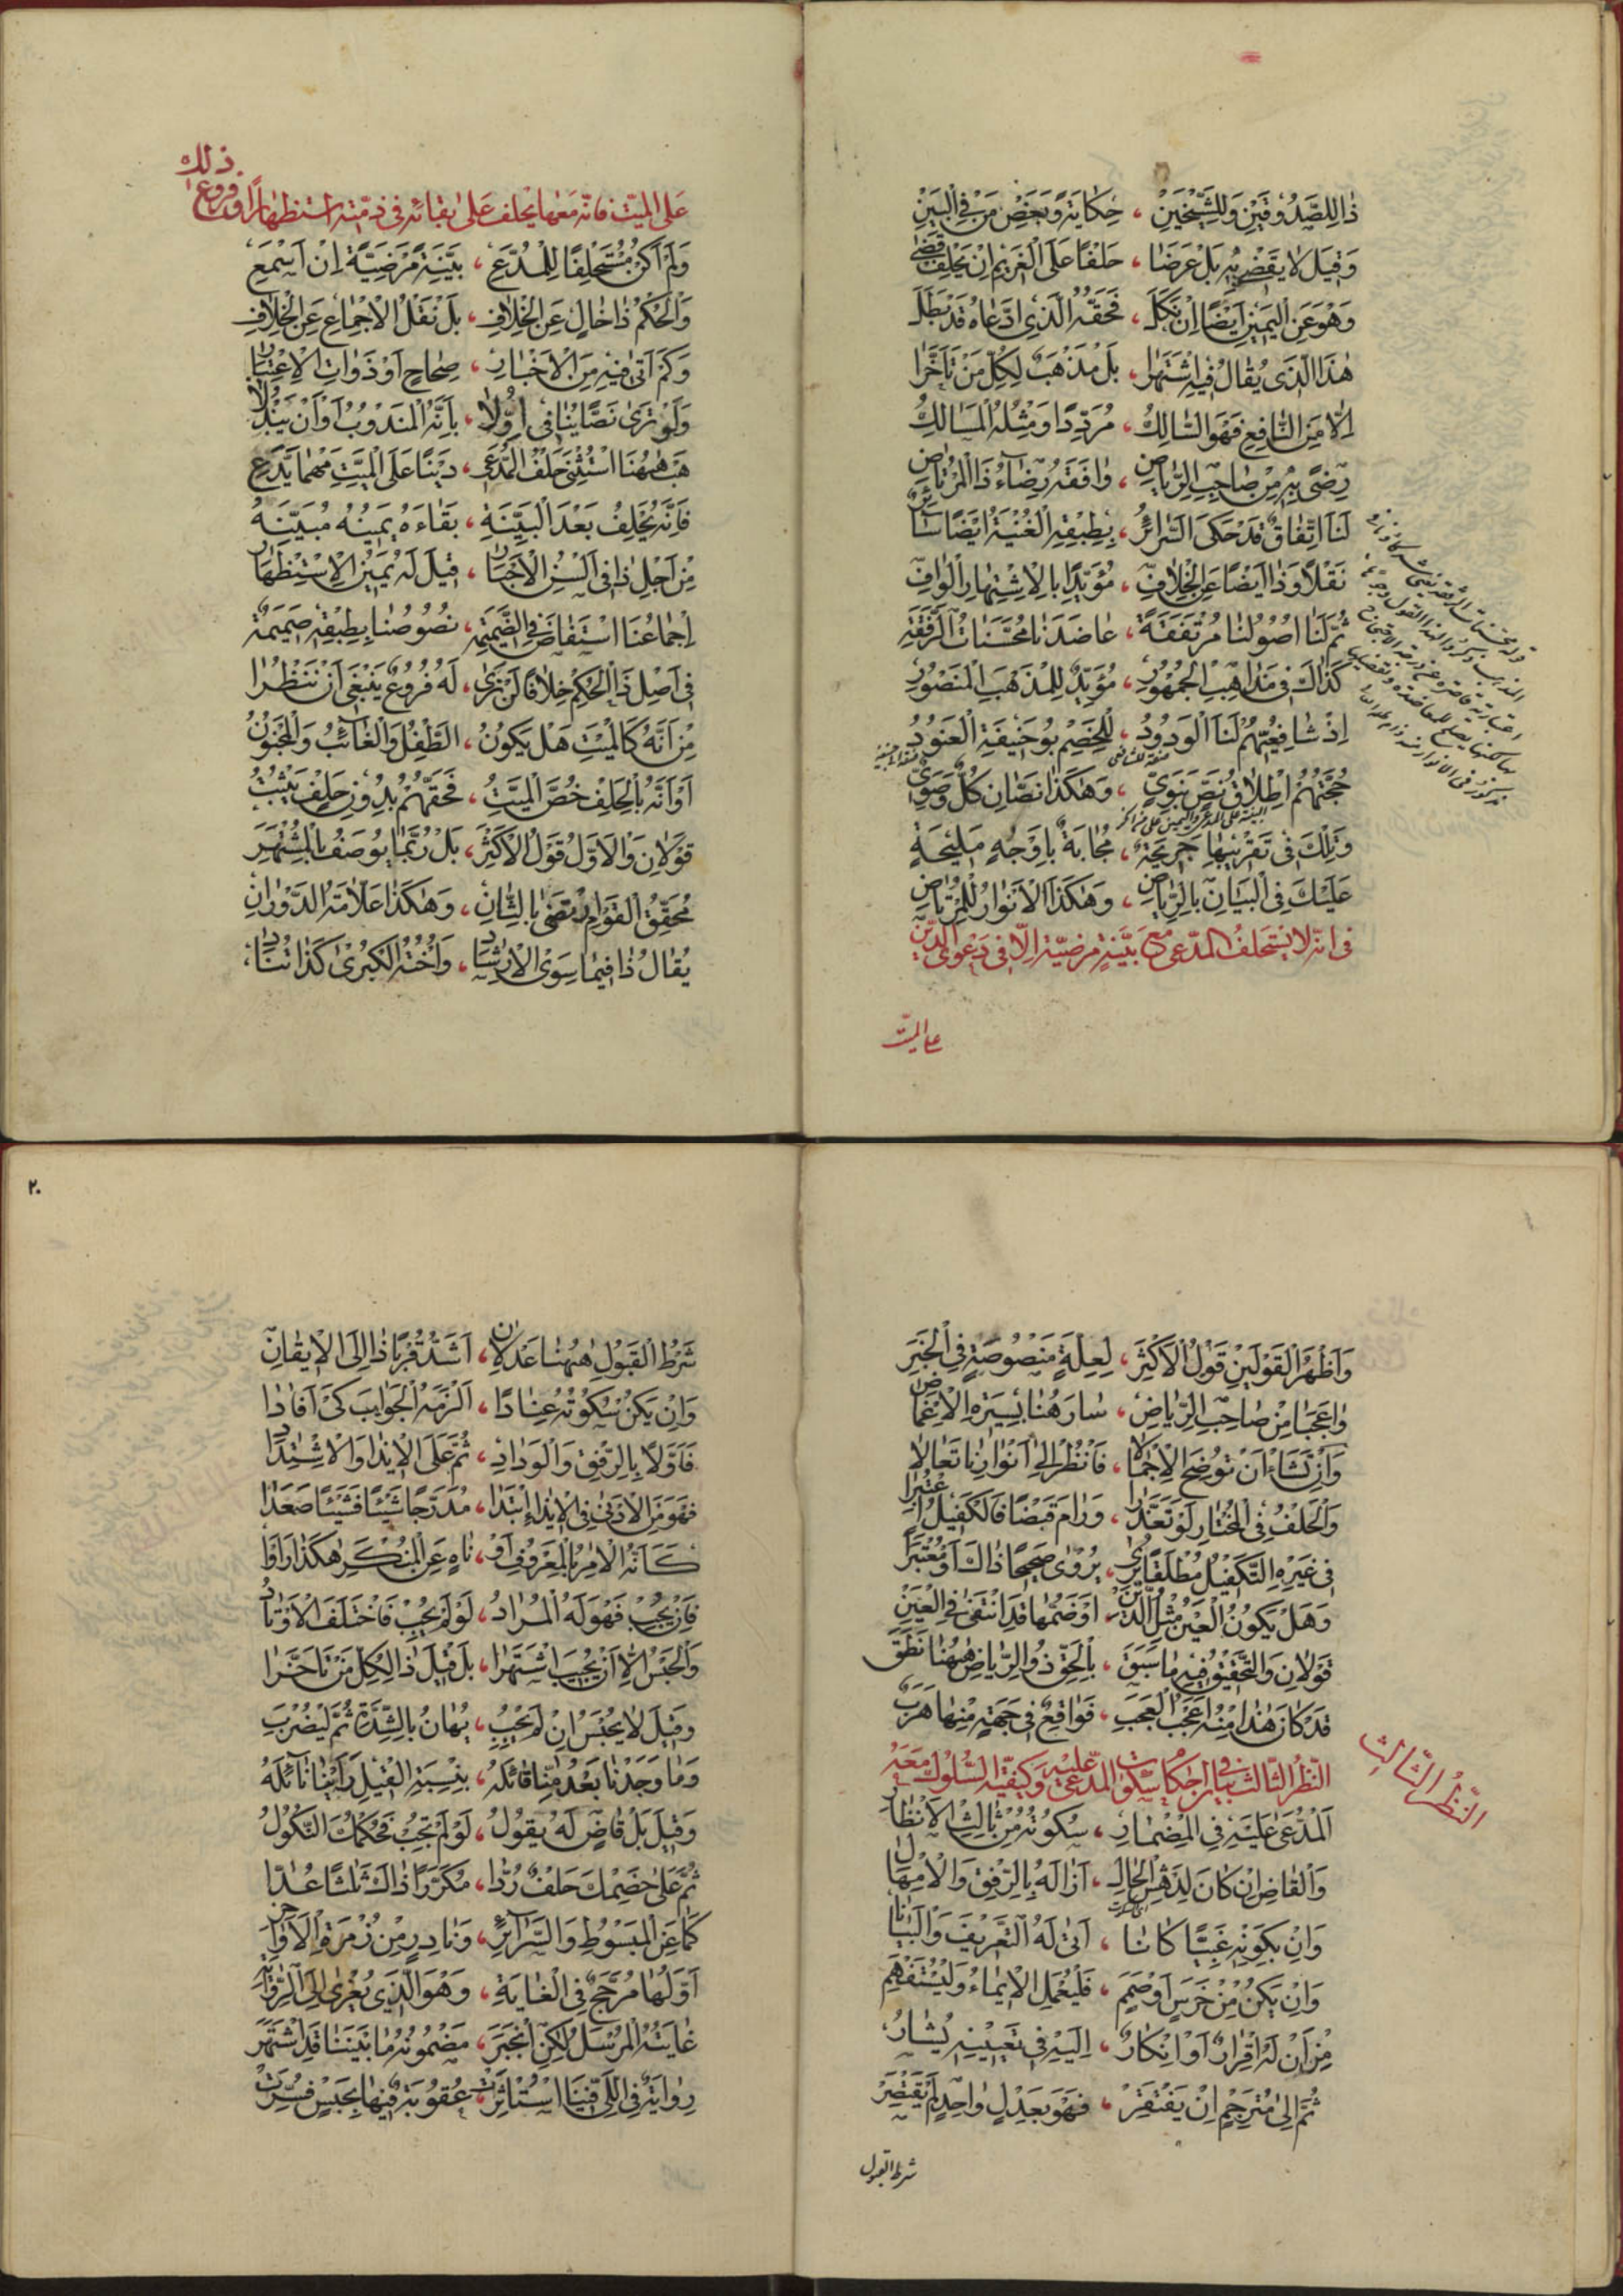 ذَا لِلصَّدُوقَيْنِ وَلِلشَّيْخَيْنِ ، حِكَايَةً وَبَعْضِ مَنْ فِي الْبَيْنِ
وَقِيلَ لَا يَقْضِي بِهِ بَلْ عَرَضَا ، حَلْفًا عَلَى الْغَرِيمِ إِنْ يَحْلِفْ قَضَى
وَهُوَ عَنِ الْيَمِينِ أَيْضًا إِنْ نَكَلَ ، فَحَقُّهُ الَّذِي ادَّعَاهُ قَدْ بَطَلَ
هٰذَا الَّذِي يُقَالُ فِيهِ اشْتَهَرَا ، بَلْ مَذْهَبٌ لِكُلِّ مَنْ تَأَخَّرَا
إِلَّا مِنَ النَّافِعِ فَهُوَ السَّالِكُ ، مُرَدِّدًا وَمِثْلُهُ الْمَسَالِكُ
رِضًى بِهِ مِنْ صَاحِبِ الرِّيَاضِ ، وَافَقَهُ رِضَاءُ ذَا الْمُرْتَاضِ
لَنَا اتِّفَاقٌ قَدْ حَكَى السَّرَائِرُ ، بِطِبْقِهِ الْغُنْيَةُ أَيْضًا سَائِرٌ
نَقْلًا وَذَا أَيْضًا عَنِ الْخِلَافِ ، مُؤَيَّدًا بِالْاِشْتِهَارِ الْوَافِ
ثُمَّ لَنَا أُصُولُنَا مُرْتَفَقَةً ، عَاضَدَنَا مُحَسَّنَاتُ الرُّفْقَةِ
كَذَاكَ فِي مَذَاهِبِ الْجُمْهُورِ ، مُؤَيِّدٌ لِلْمَذْهَبِ الْمَنْصُورِ
إِذْ شَافِعِيُّهُمْ لَنَا الْوَدُودُ ، لِلْخَصْمِ بُو حَنِيفَةَ الْعَنُودُ
حُجَّتُهُمْ إِطْلَاقُ نَصٍّ نَبَوِيٍّ ، وَهٰكَذَا نَصَّانِ كُلٌّ وَصَوِيٌّ
البينة على المدعي واليمين على من انكر
وَتِلْكَ فِي تَقْرِيبِهَا جَرِيحَةٌ ، مُجَابَةٌ بِأَوْجُهٍ مَلِيحَةٍ
عَلَيْكَ فِي الْبَيَانِ بِالرِّيَاضِ ، وَهٰكَذَا الْأَنْوَارُ لِلْمُرْتَاضِ
في انّه لا يستحلف المدّعي مع بيّنةٍ مرضيّة الّا في دعوى الدّين
على الميّت
على الميّت فانّه معها يحلف على بقائه في ذمّته استظهارًا وفروع ذلك
وَلَمْ أَكُنْ مُسْتَحْلِفًا لِلْمُدَّعِي ، بَيِّنَةً مَرْضِيَّةً إِنْ أَسْمَعِ
وَالْحُكْمُ ذَا خَالٍ عَنِ الْخِلَافِ ، بَلْ نَقْلُ الْإِجْمَاعِ عَنِ الْخِلَافِ
وَكَمْ أَتَى فِيهِ مِنَ الْأَخْبَارِ ، صِحَاحٍ أَوْ ذَوَاتِ الْاِعْتِبَارِ
وَلَوْ تَرَى نَصًّا يُنَافِي أُوِّلَا ، بِأَنَّهُ الْمَنْدُوبُ أَوْ أَنْ يَبْذُلَا
هَبْ هٰهُنَا اسْتُثْنِيَ حَلْفُ الْمُدَّعِي ، دَيْنًا عَلَى الْمَيِّتِ مَهْمَا يَدَّعِ
فَإِنَّهُ يُحْلَفُ بَعْدَ الْبَيِّنَةِ ، بَقَاءَهُ يَمِينُهُ مُبَيِّنَةُ
مِنْ أَجْلِ ذَا فِي أَلْسُنِ الْأَحْبَارِ ، قِيلَ لَهُ يَمِينُ الْاِسْتِظْهَارِ
إِجْمَاعُنَا اسْتَفَاضَ فِي الضَّمِيمَةِ ، نُصُوصُنَا بِطِبْقِهِ صَمِيمَةٌ
فِي أَصْلِ ذَا الْحُكْمِ خِلَافًا لَنْ نَرَى ، لَهُ فُرُوعٌ يَنْبَغِي أَنْ نَنْظُرَا
مِنْ أَنَّهُ كَالْمَيِّتِ هَلْ يَكُونُ ، الطِّفْلُ وَالْغَائِبُ وَالْمَجْنُونُ
أَوْ أَنَّهُ بِالْحَلْفِ خُصَّ الْمَيِّتُ ، فَحَقُّهُمْ بِدُونِ حَلْفٍ يَثْبُتُ
قَوْلَانِ وَالْأَوَّلُ قَوْلُ الْأَكْثَرِ ، بَلْ رُبَّمَا يُوصَفُ بِالْمُشْتَهَرِ
مُحَقِّقُ الْقَوْمِ ارْتَضَى بِالثَّانِ ، وَهٰكَذَا عَلَّامَةُ الدَّوْرَانِ
يُقَالُ ذَا فِيمَا سِوَى الْإِرْشَادِ ، وَأُخْتُهُ الْكُبْرَى كَذَا تُنَادِ
وَأَظْهَرُ الْقَوْلَيْنِ قَوْلُ الْأَكْثَرِ ، لِعِلَّةٍ مَنْصُوصَةٍ فِي الْخَبَرِ
وَاعَجَبَا مِنْ صَاحِبِ الرِّيَاضِ ، سَارَ هُنَا بِسِيرَةِ الْإِغْمَاضِ
وَإِنْ تَشَاءْ أَنْ تُوضِحَ الْإِجْمَالَا ، فَانْظُرْ إِلَى أَنْوَارِنَا تَعَالَا
وَالْحَلْفُ فِي الْمُخْتَارِ لَوْ تَعَذَّرَا ، وَرَامَ قَبْضًا فَالْكَفِيلُ اعْتُبِرَا
فِي غَيْرِهِ التَّكْفِيلُ مُطْلَقًا يُرَى ، يُرْوَى صَحِيحًا ذَاكَ أَوْ مُعْتَبَرًا
وَهَلْ يَكُونُ الْعَيْنُ مِثْلَ الدَّيْنِ ، أَوْ ضَمُّهَا قَدِ انْتَفَى فِي الْعَيْنِ
قَوْلَانِ وَالتَّحْقِيقُ فِيهِ مَا سَبَقَ ، بِالْحَقِّ ذُو الرِّيَاضِ هٰهُنَا نَطَقَ
قَدْ كَانَ هٰذَا مِنْهُ أَعْجَبَ الْعَجَبِ ، فَوَاقِعٌ فِي جِهَةٍ مِنْهَا هَرَبَ
النّظر الثّالث
النّظر الثّالث في بيان احكام سكوت المدّعى عليه وكيفيّة السّلوك معه
اَلْمُدَّعَى عَلَيْهِ فِي الْمِضْمَارِ ، سُكُوتُهُ مِنْ ثَالِثِ الْأَنْظَارِ
وَالْقَاضِ إِنْ كَانَ لِدَهْشِ الْحَالِ ، أَزَالَهُ بِالرِّفْقِ وَالْإِمْهَالِ
وَإِنْ بِكَوْنِهِ غَبِيًّا كَانَا ، أَتَى لَهُ التَّعْرِيفَ وَالْبَيَانَا
وَإِنْ يَكُنْ مِنْ خَرَسٍ أَوْ صَمَمٍ ، فَلْيُعْمَلِ الْإِيمَاءُ وَلْيُسْتَفْهَمِ
مِنْ أَنْ لَهُ إِقْرَارٌ أَوْ إِنْكَارٌ ، إِلَيْهِ فِي تَعْيِينِهِ يُشَارُ
ثُمَّ إِلَى مُتَرْجِمٍ إِنْ يَفْتَقِرْ ، فَهُوَ بِعَدْلٍ وَاحِدٍ لَمْ يَقْتَصِرْ
شرط القبول
٢٠
شَرْطُ الْقَبُولِ هٰهُنَا عَدْلَانِ ، أَشَدُّ قُرْبًا ذَا إِلَى الْإِيقَانِ
وَإِنْ يَكُنْ سُكُوتُهُ عِنَادًا ، أَلْزَمَهُ الْجَوَابَ كَيْ أَفَادَا
فَأَوَّلًا بِالرِّفْقِ وَالْوَدَادِ ، ثُمَّ عَلَى الْإِيذَا وَالْاِشْتِدَادِ
فَهُوَ مِنَ الْأَدْنَى فِي الْإِيذَا ابْتَدَا ، مُدَرِّجًا شَيْئًا فَشَيْئًا صَعَدَا
كَأَنَّهُ الْآمِرُ بِالْمَعْرُوفِ أَوْ ، نَاهٍ عَنِ الْمُنْكَرِ هٰكَذَا رَأَوْا
فَإِنْ يُجِبْ فَهُوَ لَهُ الْمُرَادُ ، لَوْ لَمْ يُجِبْ فَاخْتَلَفَ الْأَوْتَادُ
وَالْحَبْسُ إِلَّا أَنْ يُجِيبَ اشْتَهَرَا ، بَلْ قِيلَ ذَا لِكُلِّ مَنْ تَأَخَّرَا
وَقِيلَ لَا يُحْبَسُ إِنْ لَمْ يُجِبِ ، يُهَانُ بِالشِّدَّةِ ثُمَّ لِيُضْرَبَ
وَمَا وَجَدْنَا بَعْدُ مِنَّا قَائِلَهُ ، بِنِسْبَةِ الْقِيلِ رَأَيْنَا نَائِلَهُ
وَقِيلَ بَلْ قَاضٍ لَهُ يَقُولُ ، لَوْ لَمْ تُجِبْ فَحُكْمُكَ النُّكُولُ
ثُمَّ عَلَى خَصْمِكَ حَلْفٌ رُدَّا ، مُكَرِّرًا ذَاكَ ثَلَثًا عُدَّا
كَمَا عَنِ الْمَبْسُوطِ وَالسَّرَائِرِ ، وَنَادِرٍ مِنْ زُمْرَةِ الْأَوَاخِرِ
أَوَّلُهَا مُرَجَّحٌ فِي الْغَايَةِ ، وَهُوَ الَّذِي يُعْزَى إِلَى الرِّوَايَةِ
غَايَتُهُ الْمُرْسَلُ لٰكِنِ انْجَبَرَ ، مَضْمُونُهُ مَا بَيْنَنَا قَدِ اشْتَهَرَ
رِوَايَةٌ فِي اللَّيِّ فِينَا اسْتُأْثِرَتْ ، عُقُوبَةٌ فِيهَا بِحَبْسٍ فُسِّرَتْ